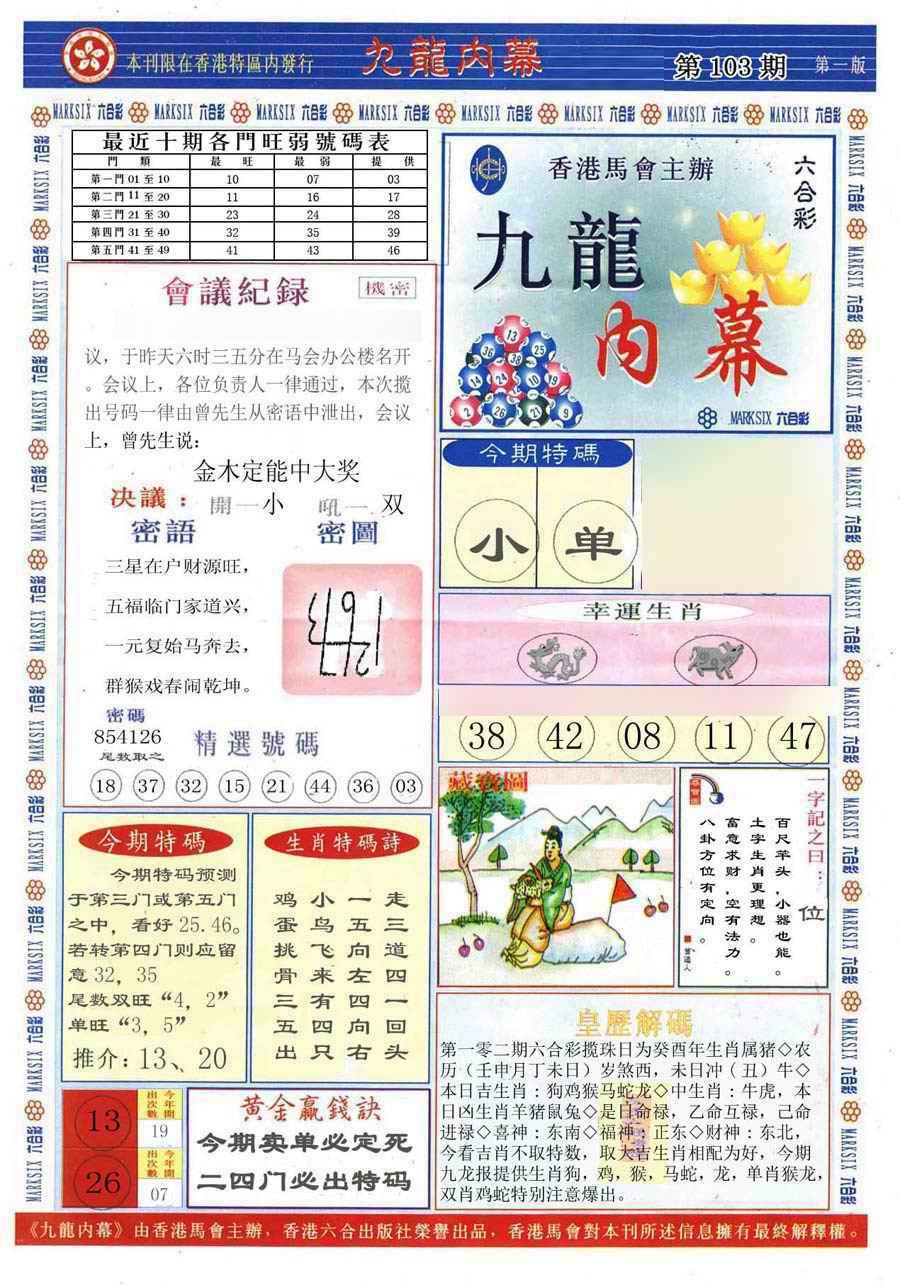 本刊限在香港特區内發行
九龍内幕
第103期
第一版
MARKSIX 六合彩
最近十期各門旺弱號碼表
門類 最旺 最弱 提供
第一門 01 至 10 10 07 03
第二門 11 至 20 11 16 17
第三門 21 至 30 23 24 28
第四門 31 至 40 32 35 39
第五門 41 至 49 41 43 46
香港馬會主辦
六合彩
九龍
内幕
13
36 38 25
14 24 10 19
2 26 21 9
MARKSIX 六合彩
會議紀録
機密
议，于昨天六时三五分在马会办公楼名开
。会议上，各位负责人一律通过，本次揽
出号码一律由曾先生从密语中泄出，会议
上，曾先生说：
金木定能中大奖
决議：開一小 吼一双
密語
密圖
三星在户财源旺，
五福临门家道兴，
一元复始马奔去，
群猴戏春闹乾坤。
密碼
854126
尾数取之
精選號碼
18 37 32 15 21 44 36 03
今期特碼
小 单
幸運生肖
38 42 08 11 47
藏寶圖
一字記之曰：位
百尺竿头，小器也能。
土字生肖更理想。
富意求财，空有法力。
八卦方位有定向。
曾道人
今期特碼
今期特码预测
于第三门或第五门
之中，看好 25.46。
若转第四门则应留
意 32，35
尾数双旺“4，2”
单旺“3，5”
推介：13、20
生肖特碼詩
鸡小一走
蛋鸟五三
挑飞向道
骨来左四
三有四一
五四向回
出只右头
皇歷解碼
第一零二期六合彩揽珠日为癸酉年生肖属猪◇农
历（壬申月丁未日）岁煞西，未日冲（丑）牛◇
本日吉生肖：狗鸡猴马蛇龙◇中生肖：牛虎，本
日凶生肖羊猪鼠兔◇是日命禄，乙命互禄，己命
进禄◇喜神：东南◇福神：正东◇财神：东北，
今看吉肖不取特数，取大吉生肖相配为好，今期
九龙报提供生肖狗，鸡，猴，马蛇，龙，单肖猴龙，
双肖鸡蛇特别注意爆出。
13
今年開出次數
19
26
今年開出次數
07
黄金贏錢訣
今期卖单必定死
二四门必出特码
《九龍内幕》由香港馬會主辦，香港六合出版社榮譽出品，香港馬會對本刊所述信息擁有最終解釋權。